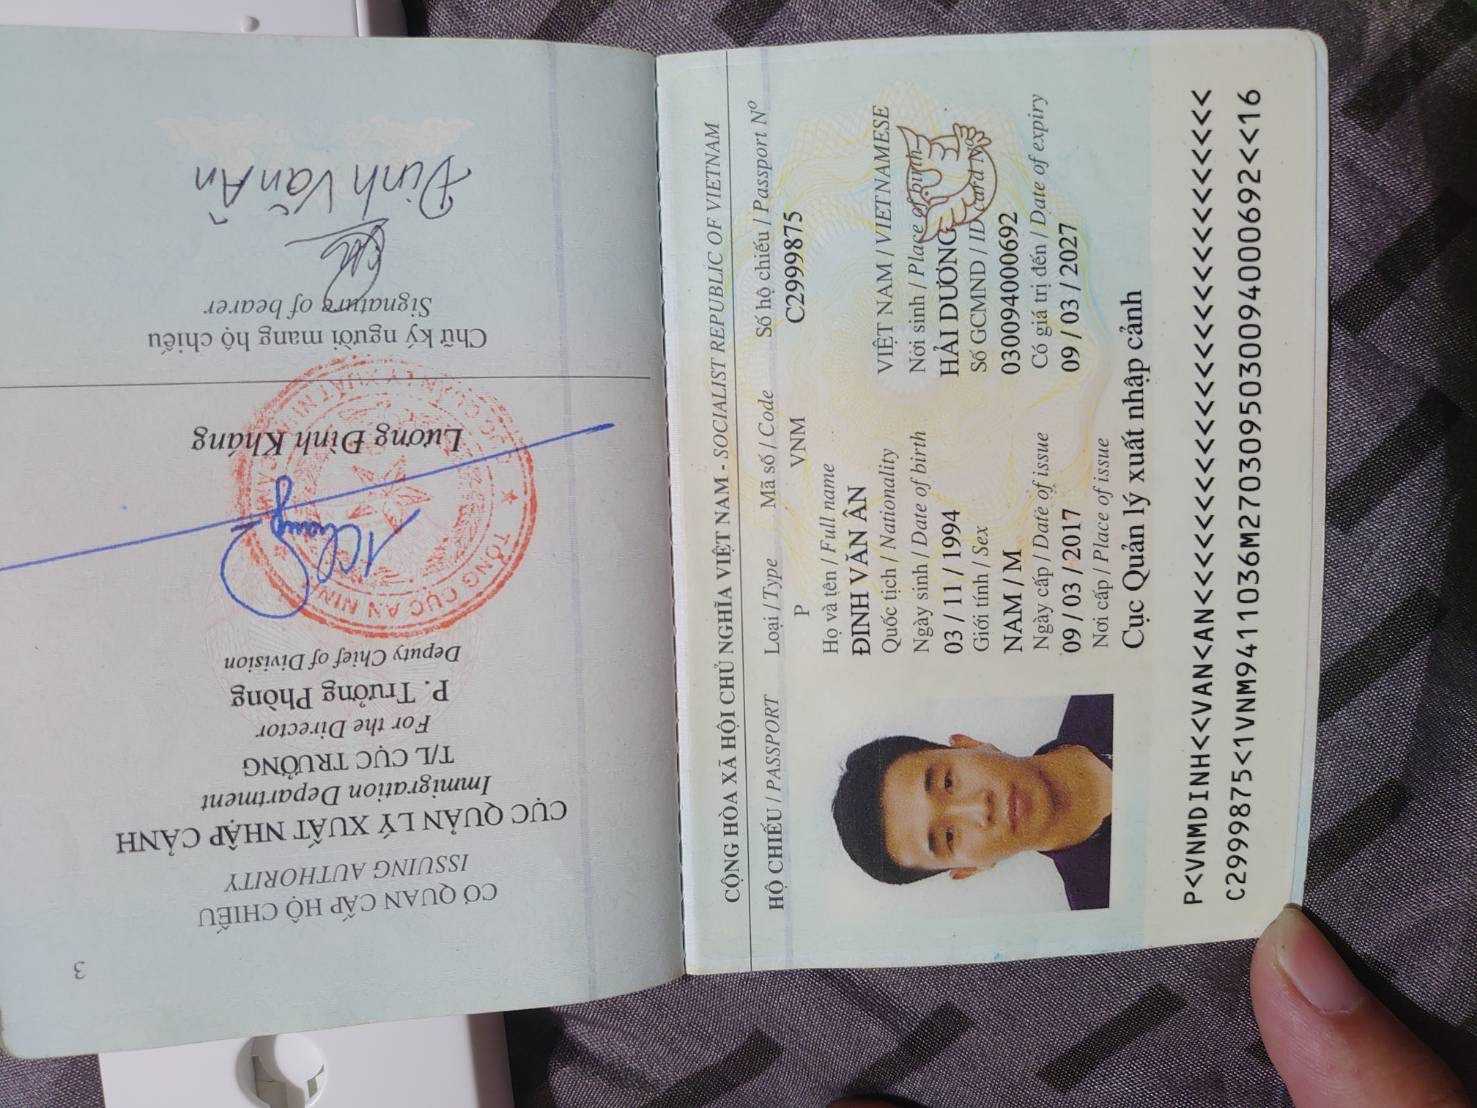 3
CƠ QUAN CẤP HỘ CHIẾU
ISSUING AUTHORITY
CỤC QUẢN LÝ XUẤT NHẬP CẢNH
Immigration Department
T/L CỤC TRƯỞNG
For the Director
P. Trưởng Phòng
Deputy Chief of Division
TỔNG CỤC AN NINH
Lương Đình Kháng
Chữ ký người mang hộ chiếu
Signature of bearer
Đinh Văn Ân
CỘNG HÒA XÃ HỘI CHỦ NGHĨA VIỆT NAM - SOCIALIST REPUBLIC OF VIETNAM
HỘ CHIẾU / PASSPORT Loại / Type Mã số / Code Số hộ chiếu / Passport Nº
P VNM C2999875
Họ và tên / Full name
ĐINH VĂN ÂN
Quốc tịch / Nationality VIỆT NAM / VIETNAMESE
Ngày sinh / Date of birth Nơi sinh / Place of birth
03 / 11 / 1994 HẢI DƯƠNG
Giới tính / Sex Số GCMND / ID card Nº
NAM / M 030094000692
Ngày cấp / Date of issue Có giá trị đến / Date of expiry
09 / 03 / 2017 09 / 03 / 2027
Nơi cấp / Place of issue
Cục Quản lý xuất nhập cảnh
P<VNMDINH<<VAN<AN<<<<<<<<<<<<<<<<<<<<<<<<<<<
C2999875<1VNM9411036M2703095030094000692<<16